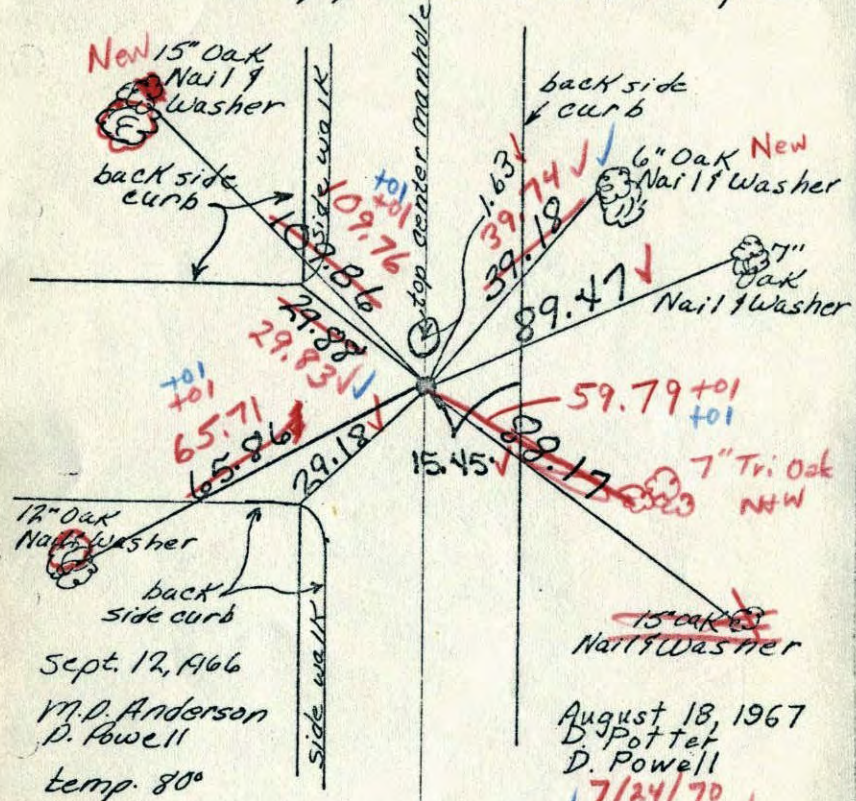 New 15" Oak
Nail &
Washer
back side
curb
side walk
top center manhole
back side
curb
6" Oak New
Nail & Washer
7"
Oak
Nail & Washer
1.63
+01
+01
109.76
109.86
39.74
39.18
89.47
29.88
29.83
+01
+01
65.71
65.86
29.18
15.45
59.79 +01
+01
88.17
7" Tri Oak
N+W
12" Oak
Nail & Washer
back
side curb
side walk
15" Oak
Nail & Washer
Sept. 12, 1966
M.D. Anderson
D. Powell
temp. 80°
August 18, 1967
D. Potter
D. Powell
7/24/70